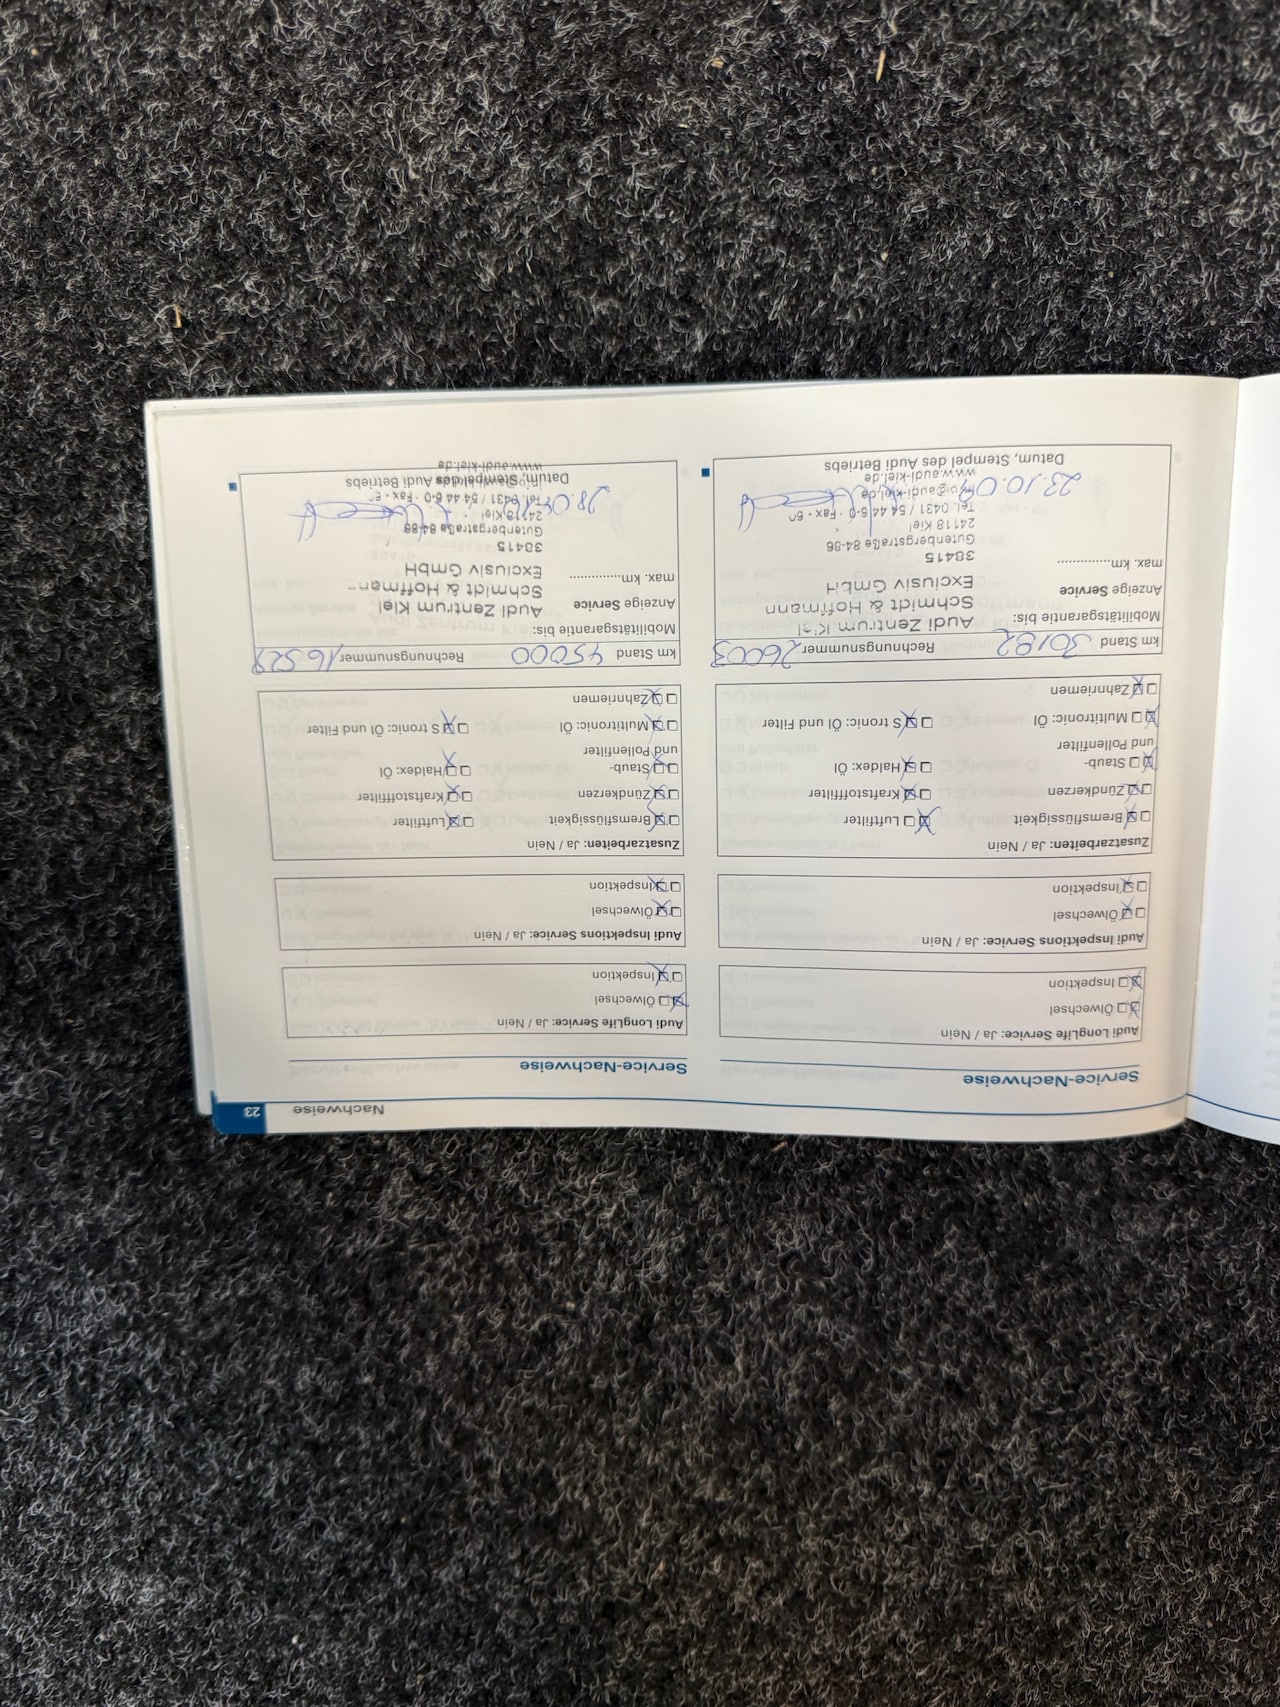 Nachweise 23
Service-Nachweise
Audi LongLife Service: Ja / Nein
Ölwechsel
Inspektion
Audi Inspektions Service: Ja / Nein
Ölwechsel
Inspektion
Zusatzarbeiten: Ja / Nein
Bremsflüssigkeit Luftfilter
Zündkerzen Kraftstofffilter
Staub- Haldex: Öl
und Pollenfilter
Multitronic: Öl S tronic: Öl und Filter
Zahnriemen
km Stand 30182 Rechnungsnummer 26003
Mobilitätsgarantie bis:
Anzeige Service
max. km
Audi Zentrum Kiel
Schmidt & Hoffmann
Exclusiv GmbH
38415
Gutenbergstraße 84-86
24118 Kiel
Tel. 0431 / 54 44 6-0 · Fax -
info@audi-kiel.de
www.audi-kiel.de
Datum, Stempel des Audi Betriebs
Service-Nachweise
Audi LongLife Service: Ja / Nein
Ölwechsel
Inspektion
Audi Inspektions Service: Ja / Nein
Ölwechsel
Inspektion
Zusatzarbeiten: Ja / Nein
Bremsflüssigkeit Luftfilter
Zündkerzen Kraftstofffilter
Staub- Haldex: Öl
und Pollenfilter
Multitronic: Öl S tronic: Öl und Filter
Zahnriemen
km Stand 45000 Rechnungsnummer
Mobilitätsgarantie bis:
Anzeige Service
max. km
Audi Zentrum Kiel
Schmidt & Hoffmann
Exclusiv GmbH
38415
Gutenbergstraße 84-86
24118 Kiel
Tel. 0431 / 54 44 6-0 · Fax -
www.audi-kiel.de
Datum, Stempel des Audi Betriebs